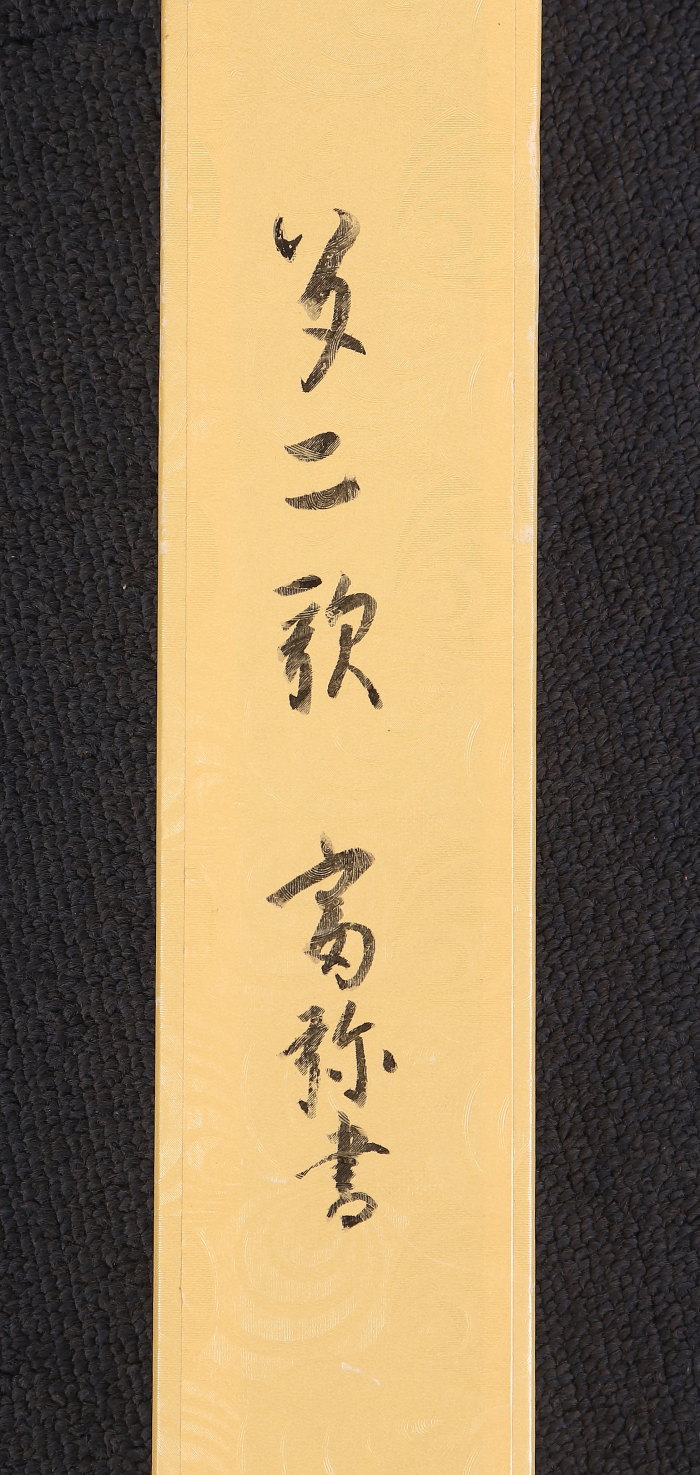 二歌 富弥書